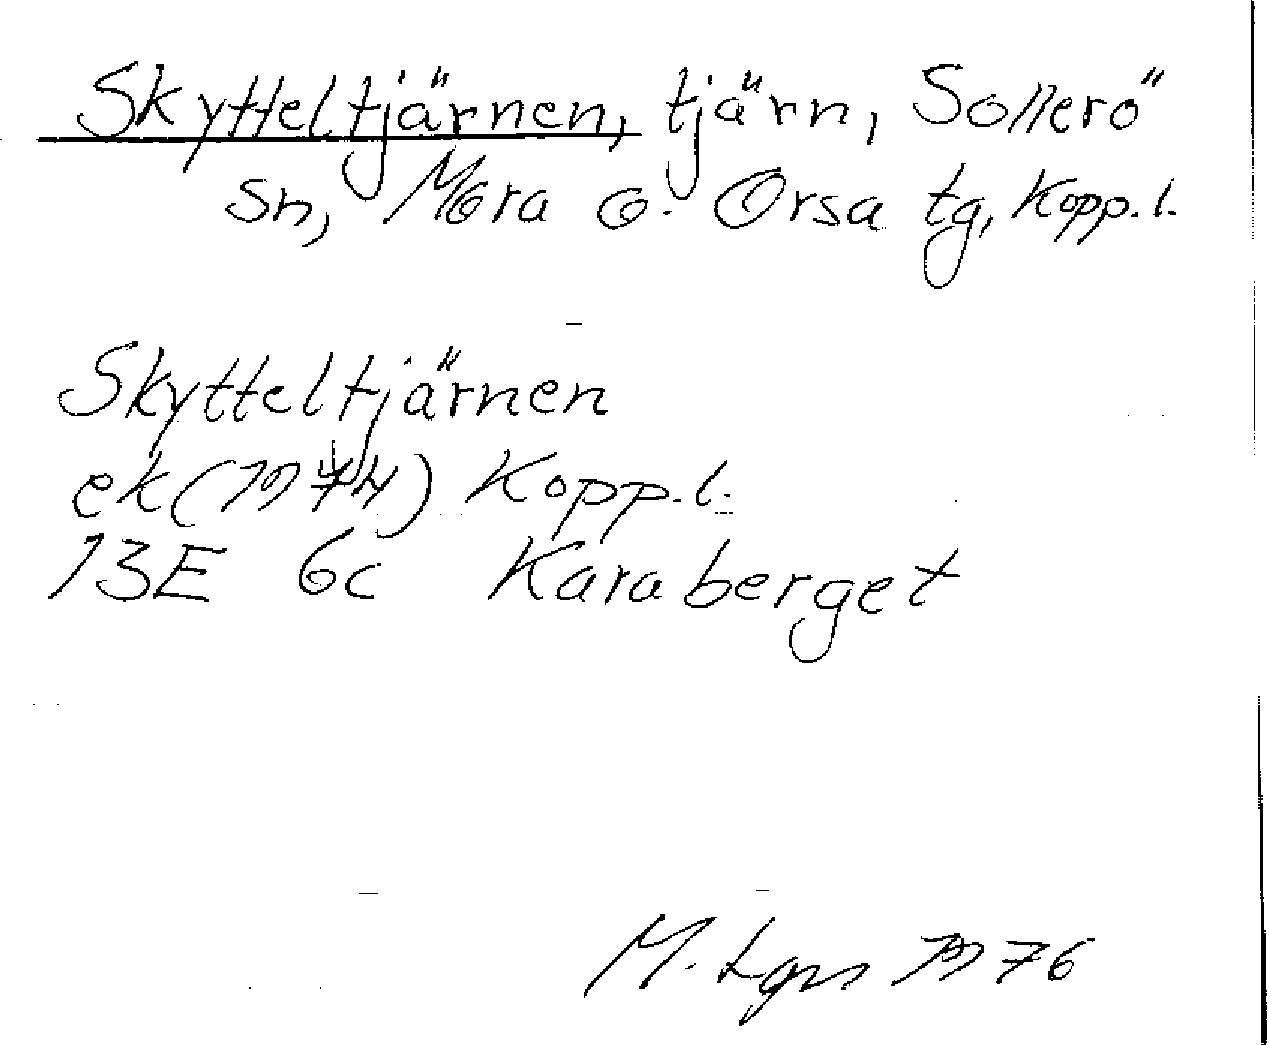 Skytteltjärnen, tjärn, Sollerö
sn, Mora o. Orsa tg, Kopp. l.
Skytteltjärnen
ek (1974) Kopp. l.
13E 6c Karaberget
M. 1976